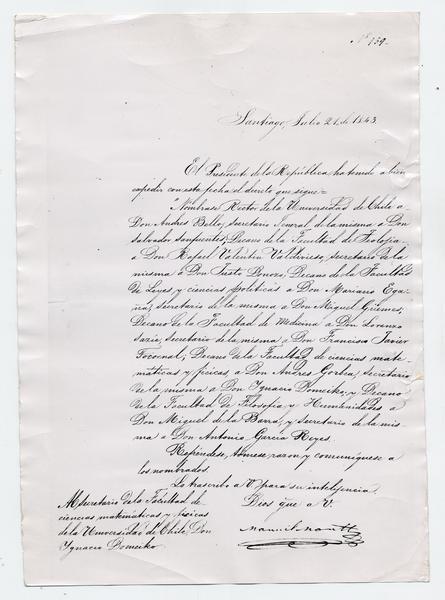 Nº 159-
Santiago, Julio 21 de 1843.
El Presidente de la República ha tenido a bien
expedir con esta fecha el decreto que sigue=
"Nómbrase Rector de la Universidad de Chile a
Don Andres Bello; Secretario Jeneral de la misma a Don
Salvador Sanfuentes; Decano de la Facultad de Teolojia
a Don Rafael Valentin Valdivieso, secretario de la
misma a Don Justo Donoso, Decano de la Facultad
de Leyes y ciencias politicas a Don Mariano Ega-
ña; secretario de la misma a Don Miguel Güemes;
Decano de la Facultad de Medicina a Don Lorenzo
Sazie, Secretario de la misma a Don Francisco Javier
Tocornal; Decano de la Facultad de ciencias mate-
máticas y físicas, a Don Andres Gorbea, secretario
de la misma a Don Ygnacio Domeiko; y Decano
de la Facultad de Filosofia y Humanidades a
Don Miguel de la Barra, y Secretario de la mis
ma a Don Antonio Garcia Reyes.
Refréndese, tómese razon y comuníquese a
los nombrados.
Lo trascribo a V para su intelijencia.
Dios gue a V.
Manuel Montt
Al secretario de la Facultad de
ciencias matemáticas y físicas
de la Universidad de Chile, Don
Ygnacio Domeiko